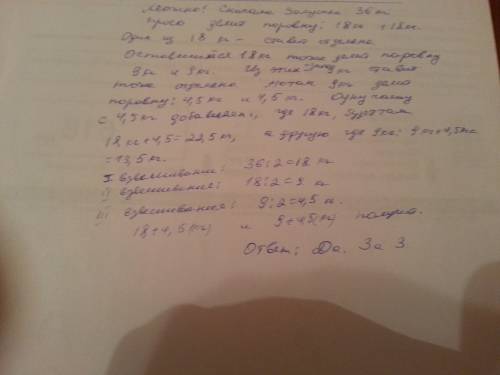 Легично! Сначала Золушка 36 кг
просо делит поровну: 18 кг и 18 кг.
Одни из 18 кг - ставит отдельно
Оставшиеся 18 кг тоже делит поровну
9 кг и 9 кг. Из них одну кг ставит
тоже отдельно. Потом 9 кг делит
поровну: 4,5 кг и 4,5 кг. Одну чашку
с 4,5 кг добавляем, где 18 кг,
18 кг + 4,5 = 22,5 кг, а другую где 9 кг: 9 кг + 4,5 кг
= 13,5 кг.
I взвешивание: 36:2=18 кг
II взвешивание: 18:2=9 кг
III взвешивание: 9:2=4,5 кг.
18+4,5(кг) и 9+4,5(кг)
Ответ: Да. За 3